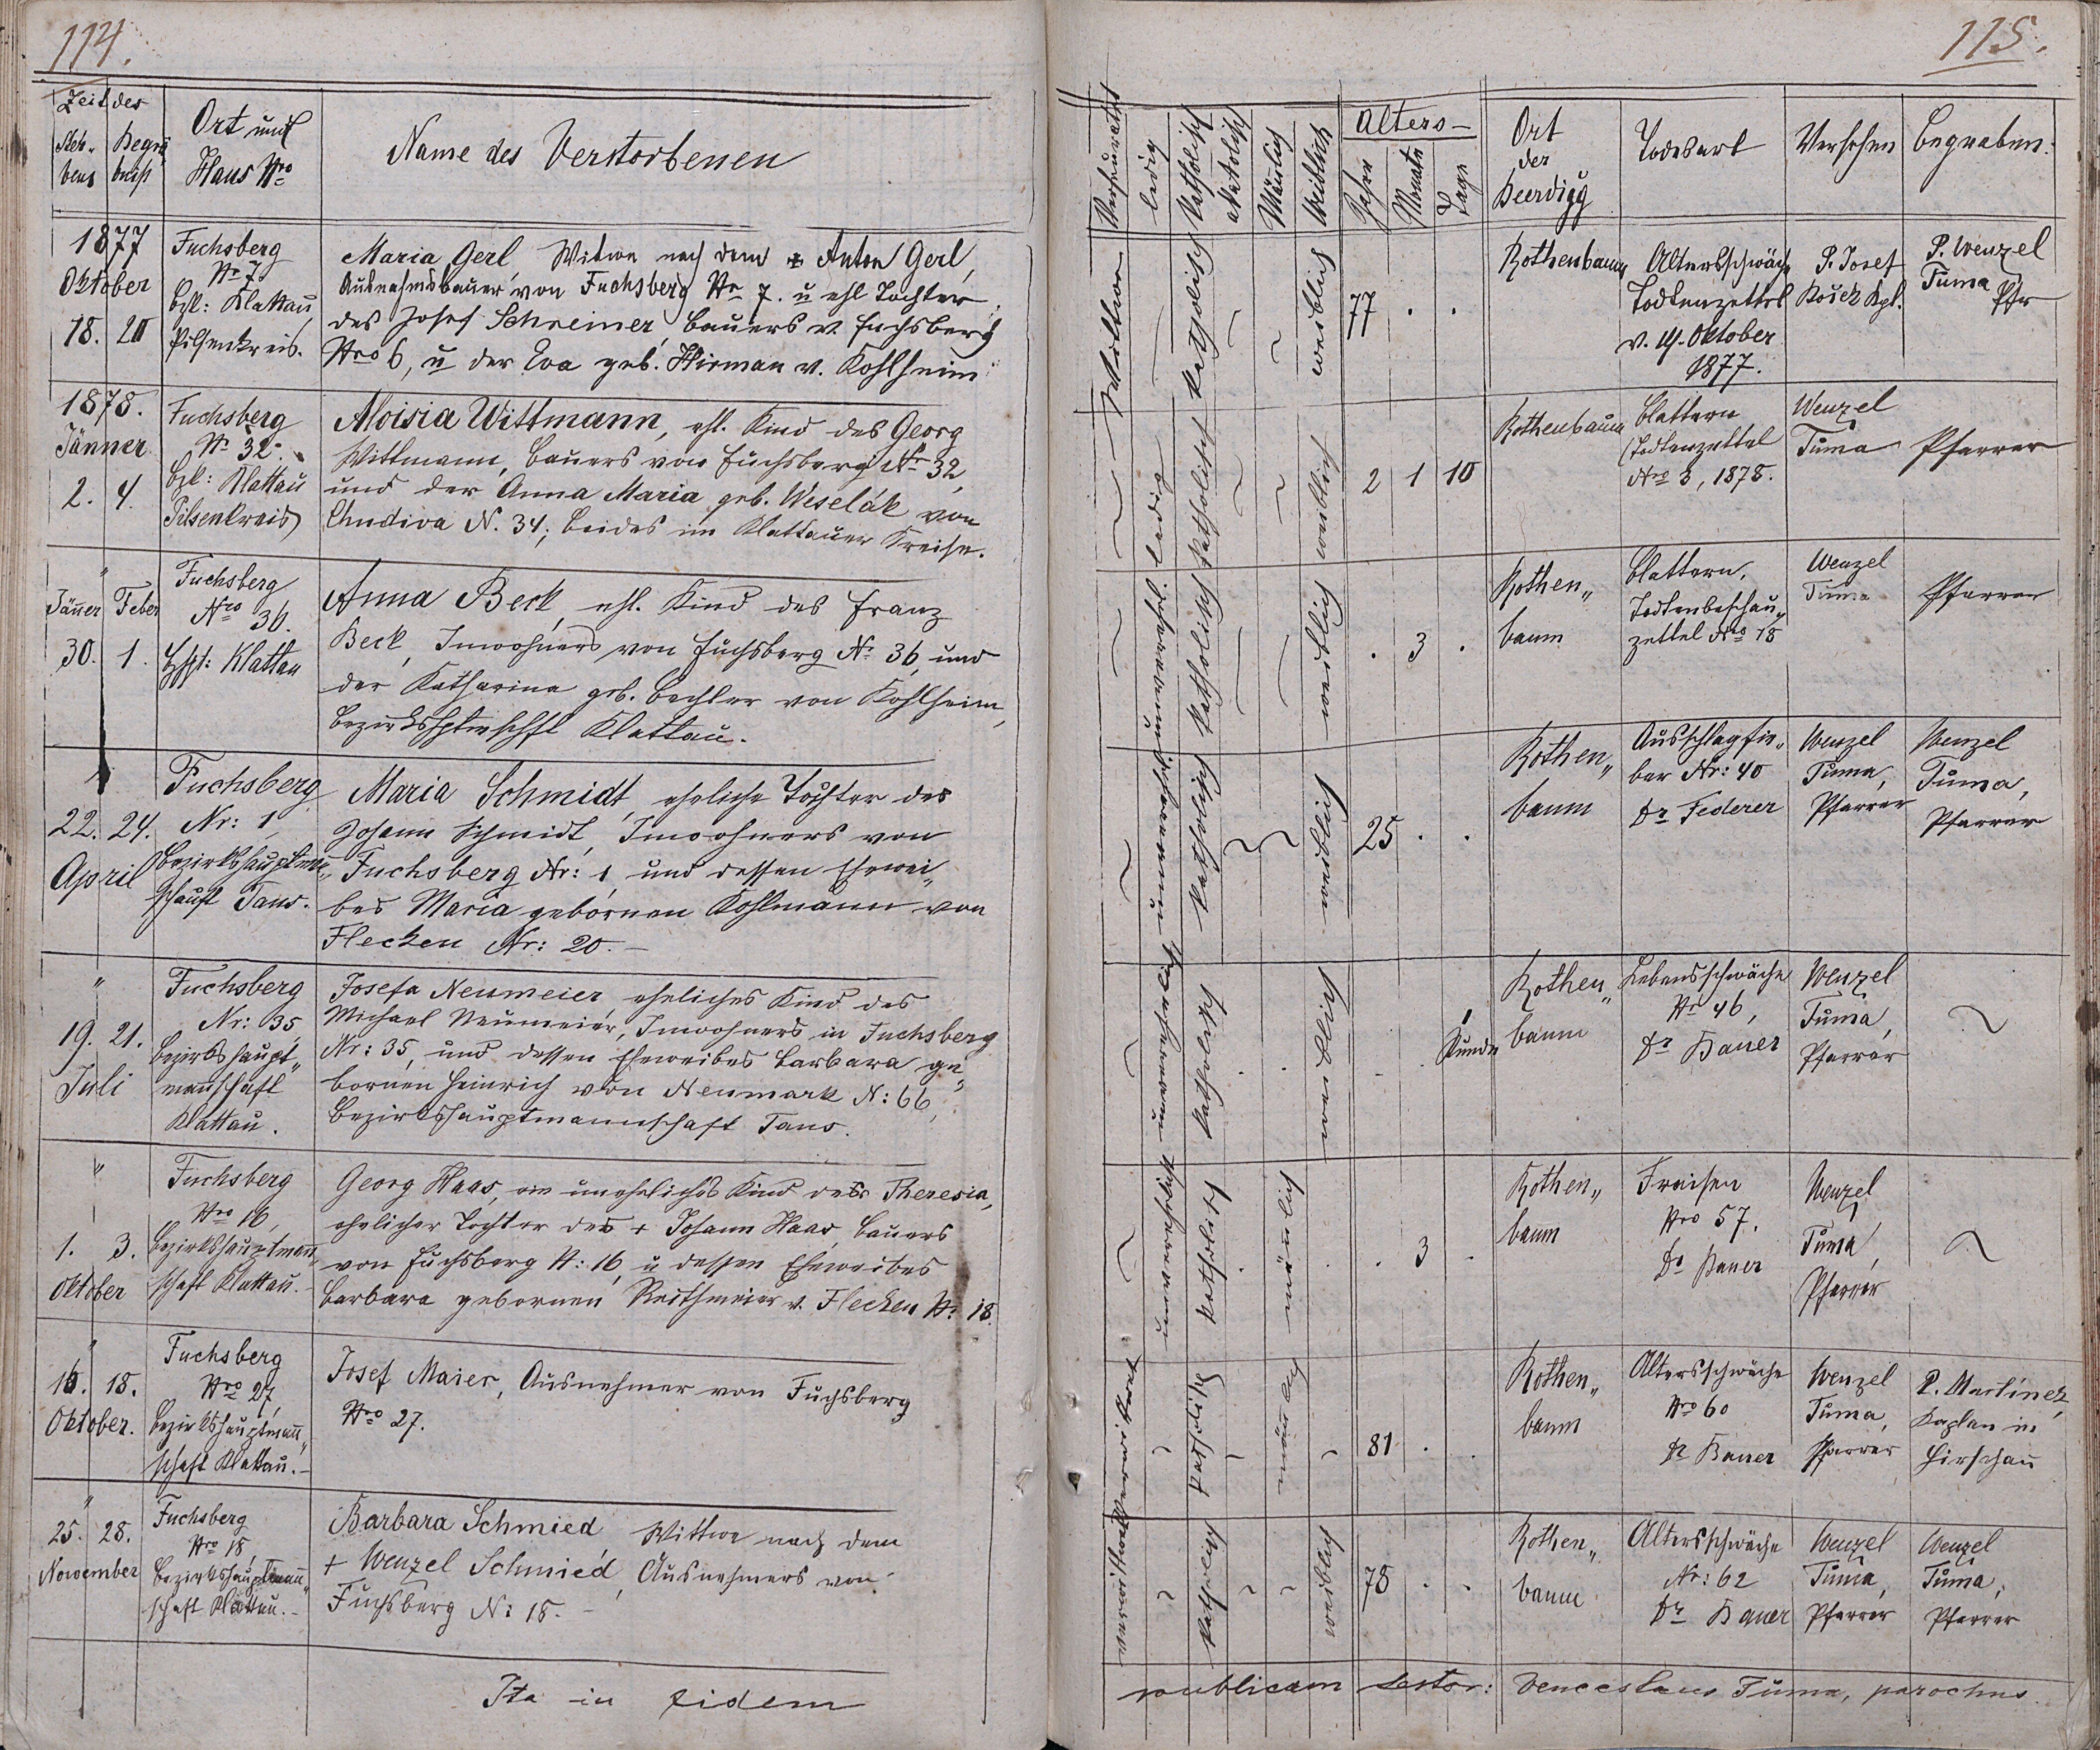 114.
Zeit des
Ster- Begrä
bens bniß
Ort und
Haus Nro
Name des Verstorbenen
1877
Oktober
18. 20
Fuchsberg
Nr 7
Bzk: Klattau
Pilsenkreis.
Maria Gerl Witwe nach dem + Anton Gerl,
Ausnahmsbauer von Fuchsberg Nr 7. u ehl Tochter
des Josef Schreiner, Bauers v. Fuchsberg
Nro 6, u der Eva geb. Hirman v. Kohlheim
1878.
Jänner
2. 4.
Fuchsberg
Nr 32.
Bzk: Klattau
Pilsenkreis
Aloisia Wittmann, ehl. Kind des Georg
Wittmann, Bauers von Fuchsberg Nr 32,
und der Anna Maria geb. Weselák von
Chudiva N. 34; beides im Klattauer Kreise.
"
Jänner Feber
30. 1.
Fuchsberg
Nro 36.
Klattau
Anna Beck, ehl. Kind des Franz
Beck, Inwohners von Fuchsberg Nr 36, und
der Katharina geb. Bechter von Kohlheim,
Klattau.
22. 24.
April
Fuchsberg
Nr: 1,
Bezirkshauptman„
schaft Taus.
Maria Schmidt, eheliche Tochter des
Johann Schmidt, Inwohners von
Fuchsberg Nr: 1 und dessen Ehewei„
bes Maria gebornen Kohlmann von
Flecken Nr: 20. —
"
19. 21.
Juli
Fuchsberg
Nr: 35,
Bezirkshaupt„
mannschaft
Klattau.
Josefa Neumeier eheliches Kind des
Michael Neumeier, Inwohners in Fuchsberg
Nr: 35, und dessen Eheweibes Barbara ge„
bornen Heinrich von Neumark N: 66,
Bezirkshauptmannschaft Taus.
"
1. 3.
Oktober
Fuchsberg
Nro 16,
Bezirkshauptman„
schaft Klattau. —
Georg Haas, ein uneheliches Kind der Theresia,
ehelicher Tochter des + Johann Haas, Bauers
von Fuchsberg N: 16, u dessen Eheweibes
Barbara gebornen Reithmeier v. Flecken Nr 18.
"
16. 18.
Oktober.
Fuchsberg
Nro 27,
Bezirkshauptman„
schaft Klattau. —
Josef Maier, Ausnehmer von Fuchsberg
Nro 27.
"
25. 28.
November
Fuchsberg
Nro 18,
Bezirkshauptman„
schaft Klattau. —
Barbara Schmied Wittwe nach dem
+ Wenzel Schmied, Ausnehmers von
Fuchsberg N: 18. —
Ita in fidem
115.
Verheurathet
ledig
Katholisch
akatolisch
Mänlich
Weiblich
Alters-
Jahre
Monate
Tage
Ort
der
Beerdigg
Todesart
Versehen
Begraben:
Wittwe
Katholisch
weiblich
77 . .
Rothenbaum
Altersschwäche
Todtenzettel
v. 19. Oktober
1877.
P. Josef
Kpl.
P. Wenzel
Tuma Pfr
ledig
Katholisch
weiblich
2 1 10
Rothenbaum
Blattern
Todtenzettel
Nro 3, 1878.
Wenzel
Tuma
Pfarrer
unverehel.
Katholisch
weiblich
. 3 .
Rothen„
baum
Blattern,
Todtenbeschau„
zettel Nro 18
Wenzel
Tuma
Pfarrer
unverehel
Katholisch
weiblich
25 . .
Rothen„
baum
Ausschlagfie„
ber Nr: 40
Dr Federer
Wenzel
Tuma,
Pfarrer
Wenzel
Tuma,
Pfarrer
unverehelicht
Katholisch
weiblich
1
Stunde
Rothen„
baum
Lebensschwäche
Nr 46,
Dr Bauer
Wenzel
Tuma,
Pfarrer
unverehelicht
Katholisch
mänlich
. 3 .
Rothen„
baum
Fraisen
Nro 57.
Dr Bauer
Wenzel
Tuma,
Pfarrer
Katholik
mänlich
81 . .
Rothen„
baum
Altersschwäche
Nro 60
Dr Bauer
Wenzel
Tuma,
Pfarrer
P. Martinez,
Kaplan in
Hirschau
verwittwet
Katholisch
weiblich
78 . .
Rothen„
baum
Altersschwäche
Nr: 62
Dr Bauer
Wenzel
Tuma,
Pfarrer
Wenzel
Tuma,
Pfarrer
publicam testor: Venceslaus Tuma, parochus.